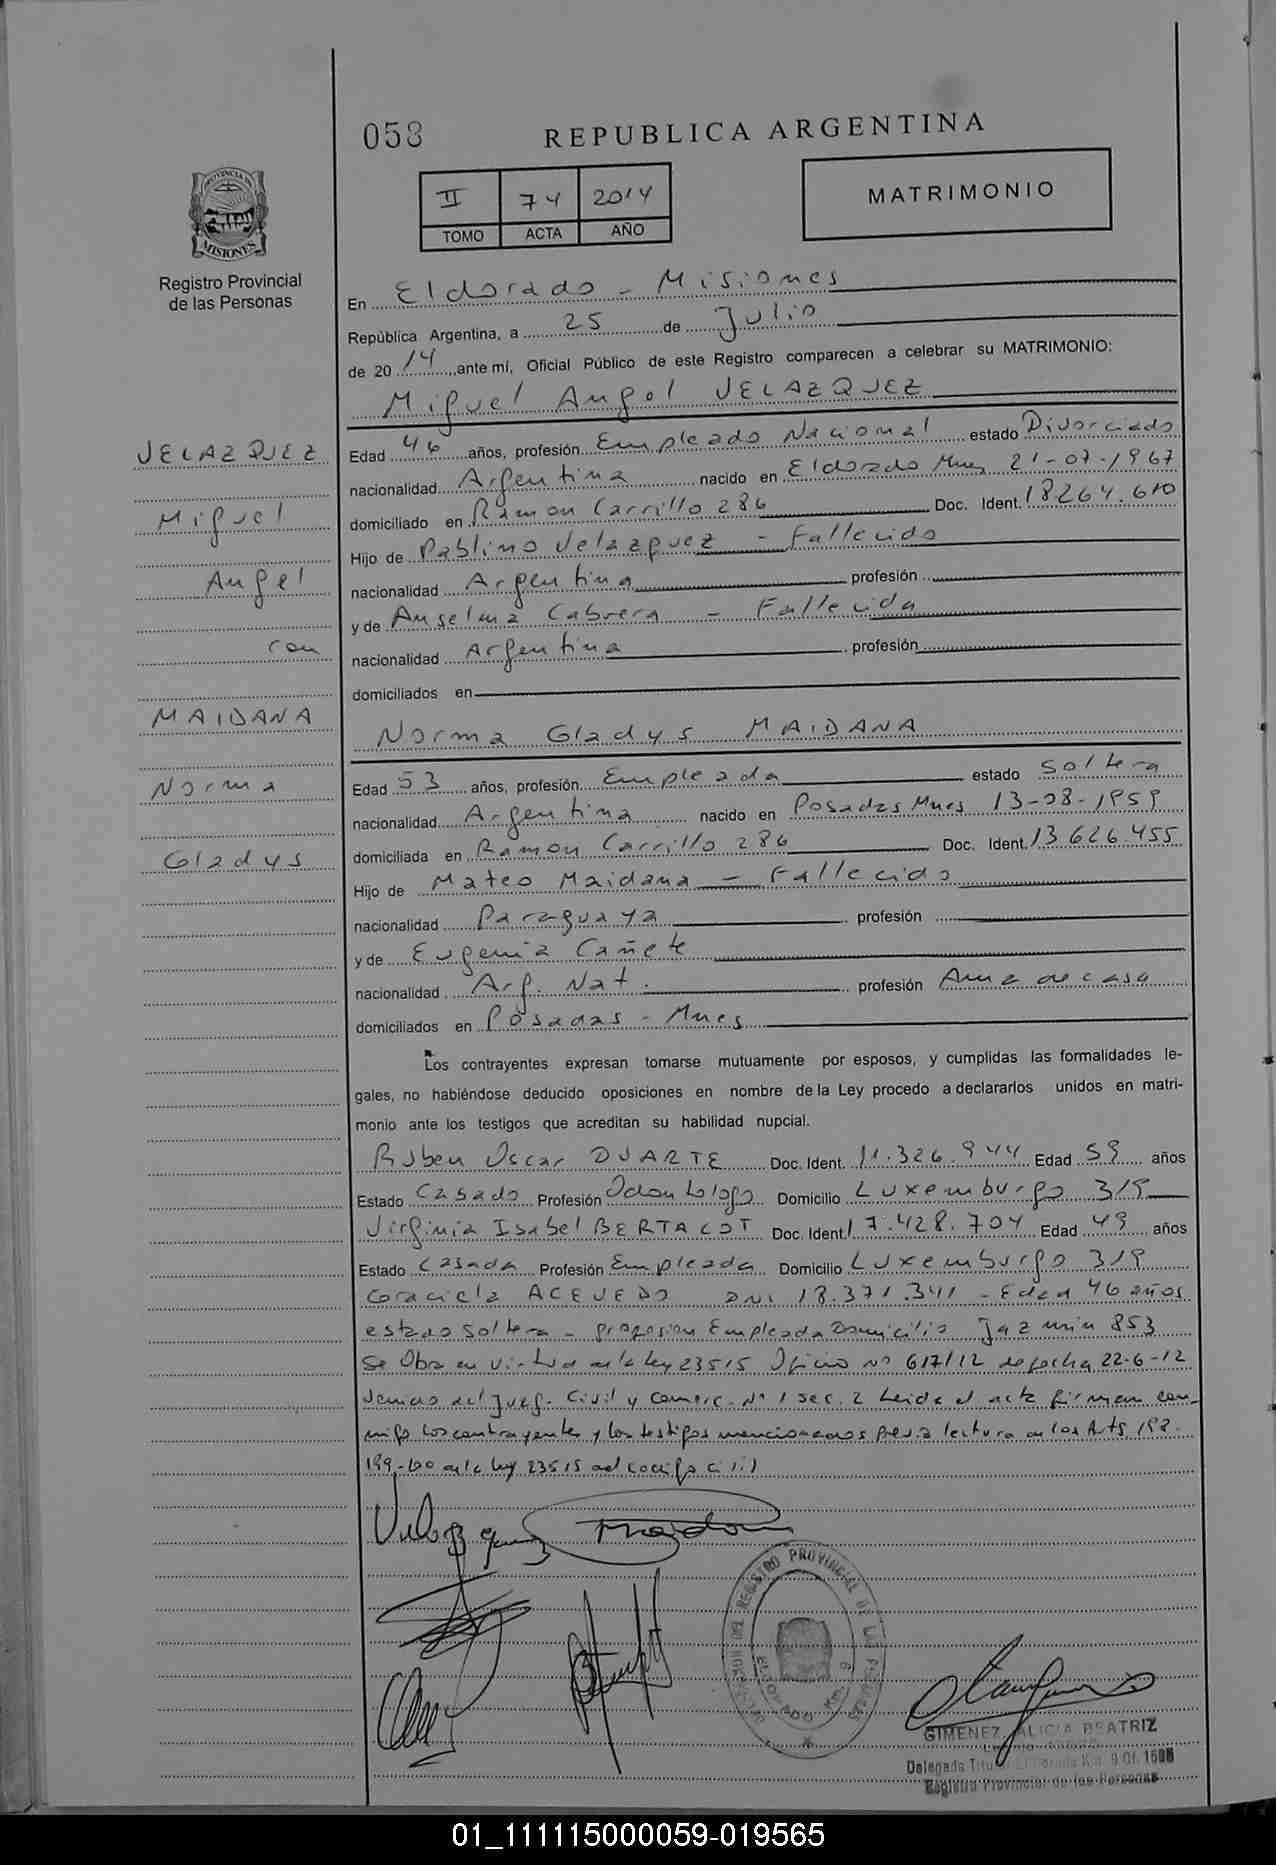 058
REPUBLICA ARGENTINA
PROVINCIA DE
MISIONES
Registro Provincial
de las Personas
II 74 2014
TOMO ACTA AÑO
MATRIMONIO
En Eldorado - Misiones
República Argentina, a 25 de Julio
de 2014 ante mí, Oficial Público de este Registro comparecen a celebrar su MATRIMONIO:
Miguel Angel VELAZQUEZ
VELAZQUEZ
Miguel
Angel
con
MAIDANA
Norma
Gladys
Edad 46 años, profesión Empleado Nacional estado Divorciado
nacionalidad Argentina nacido en Eldorado Mnes 21-07-1967
domiciliado en Ramon Carrillo 286 Doc. Ident. 18264.610
Hijo de Pablino Velazquez - Fallecido
nacionalidad Argentina profesión
y de Anselma Cabrera - Fallecida
nacionalidad Argentina profesión
domiciliados en
Norma Gladys MAIDANA
Edad 53 años, profesión Empleada estado Soltera
nacionalidad Argentina nacido en Posadas Mnes 13-08-1959
domiciliada en Ramon Carrillo 286 Doc. Ident. 13.626.455
Hijo de Mateo Maidana - Fallecido
nacionalidad Paraguaya profesión
y de Eugenia Cañete
nacionalidad Arg. Nat. profesión Ama de casa
domiciliados en Posadas - Mnes
Los contrayentes expresan tomarse mutuamente por esposos, y cumplidas las formalidades le-
gales, no habiéndose deducido oposiciones en nombre de la Ley procedo a declararlos unidos en matri-
monio ante los testigos que acreditan su habilidad nupcial.
Ruben Oscar DUARTE Doc. Ident. 11.326.944 Edad 59 años
Estado Casado Profesión Odontologo Domicilio Luxemburgo 319
Virginia Isabel BERTACOT Doc. Ident. 17.428.704 Edad 49 años
Estado Casada Profesión Empleada Domicilio Luxemburgo 319
Graciela ACEVEDO DNI 18.371.341 - Edad 46 años
estado Soltera - profesion Empleada Domicilio Jazmin 853
Se Obra en virtud de la ley 23515 Oficio Nº 617/12 de fecha 22-6-12
del Juzg. Civil y Comerc. Nº 1 sec. 2 Leida el acta firman con-
migo los contrayentes y los testigos mencionados previa lectura de los Arts 198-
199-200 de la ley 23515 del codigo civil
Velazquez Maidana
REGISTRO PROVINCIAL DE LAS PERSONAS
ELDORADO KM. 9
GIMENEZ, ALICIA BEATRIZ
Delegada Titular Eldorado Km. 9 Of.
Registro Provincial de las Personas
01_111115000059-019565